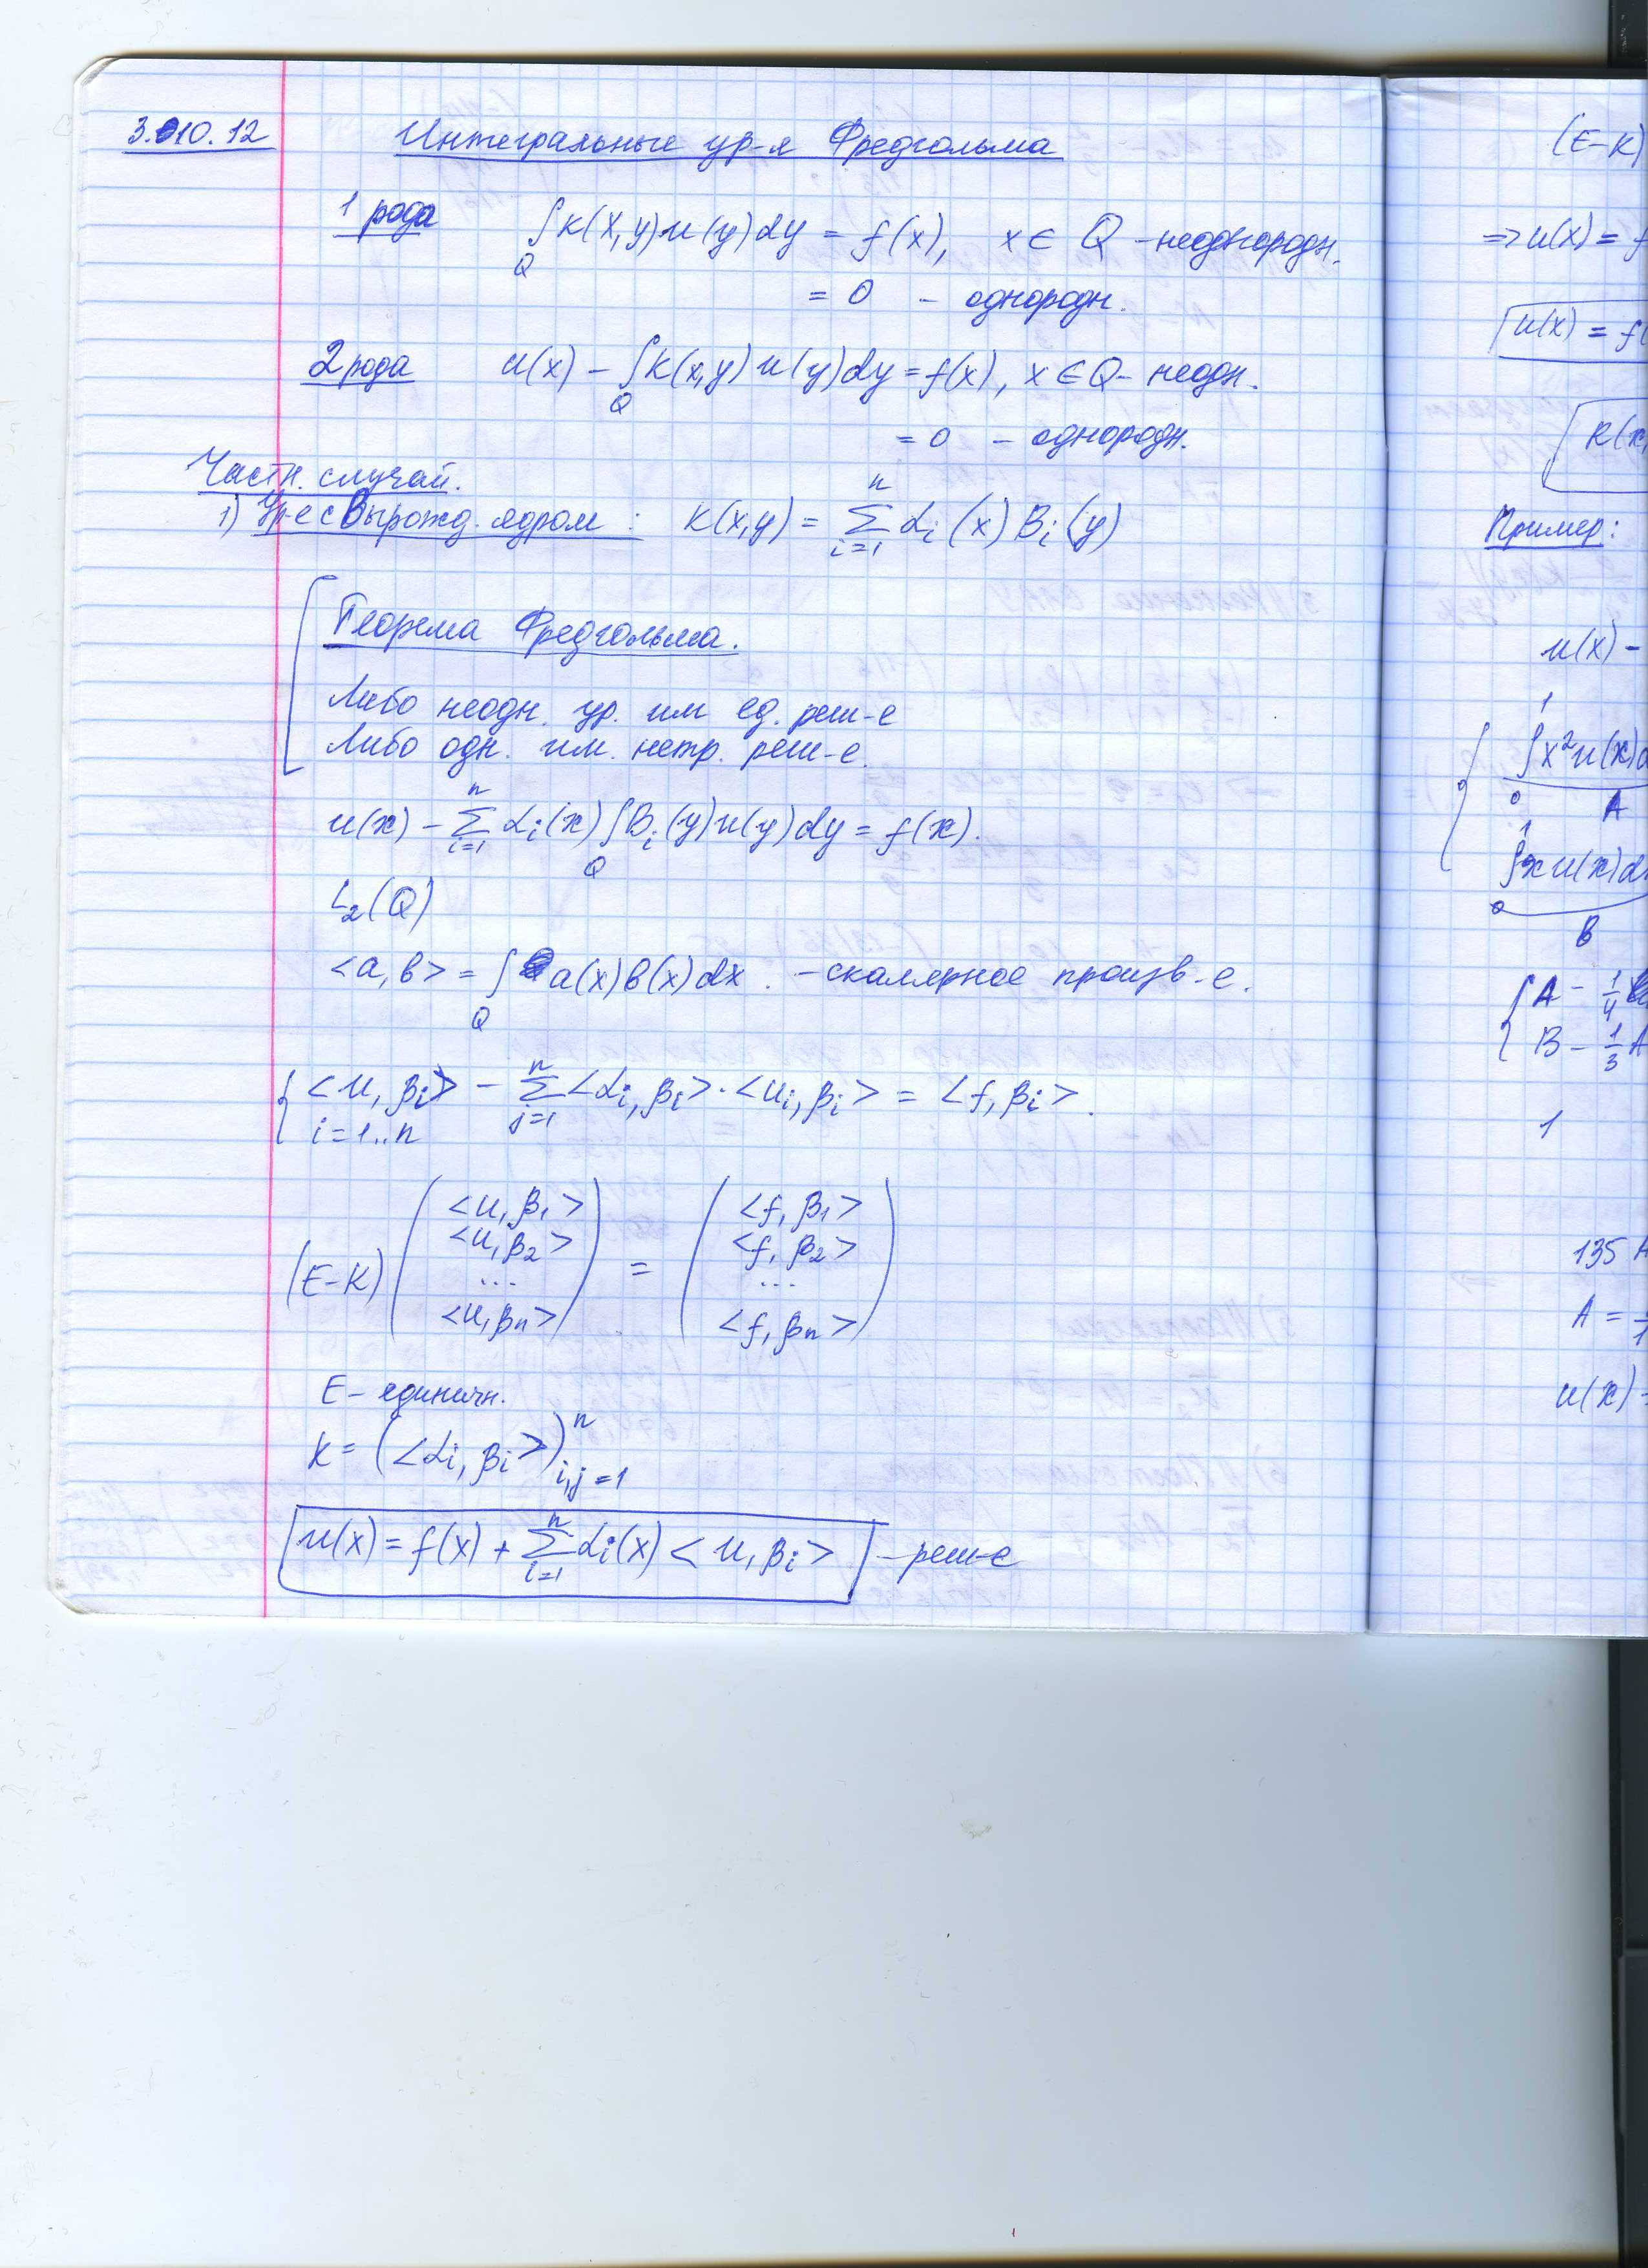 3.10.12
Интегральные ур-я Фредгольма
1 рода ∫_Q K(x,y)u(y)dy = f(x), x ∈ Q – неоднородн.
= 0 – однородн.
2 рода u(x) – ∫_Q K(x,y)u(y)dy = f(x), x ∈ Q – неодн.
= 0 – однородн.
Частн. случай.
1) Ур-е с вырожд. ядром: K(x,y) = ∑_{i=1}^{n} α_i(x) B_i(y)
Теорема Фредгольма.
Либо неодн. ур. им ед. реш-е
Либо одн. им. нетр. реш-е.
u(x) – ∑_{i=1}^{n} α_i(x) ∫_Q B_i(y)u(y)dy = f(x).
L_2(Q)
<a,b> = ∫_Q a(x)b(x)dx. – скалярное произв-е.
{ <u, β_i> – ∑_{j=1}^{n} <α_i, β_i> · <u_i, β_i> = <f, β_i>.
i = 1..n
(E–K) ( <u, β_1> <u, β_2> ... <u, β_n> ) = ( <f, β_1> <f, β_2> ... <f, β_n> )
E – единичн.
K = (<α_i, β_i>)_{i,j=1}^{n}
u(x) = f(x) + ∑_{i=1}^{n} α_i(x) <u, β_i> – реш-е
(E–K)
=> u(x) = f
u(x) = f(
K(x,
Пример:
u(x) –
∫_0^1 x²u(x)d
A
∫_0^1 x u(x)d
B
{ A – 1/4
B – 1/3 A
1
135 A
A =
u(x) =